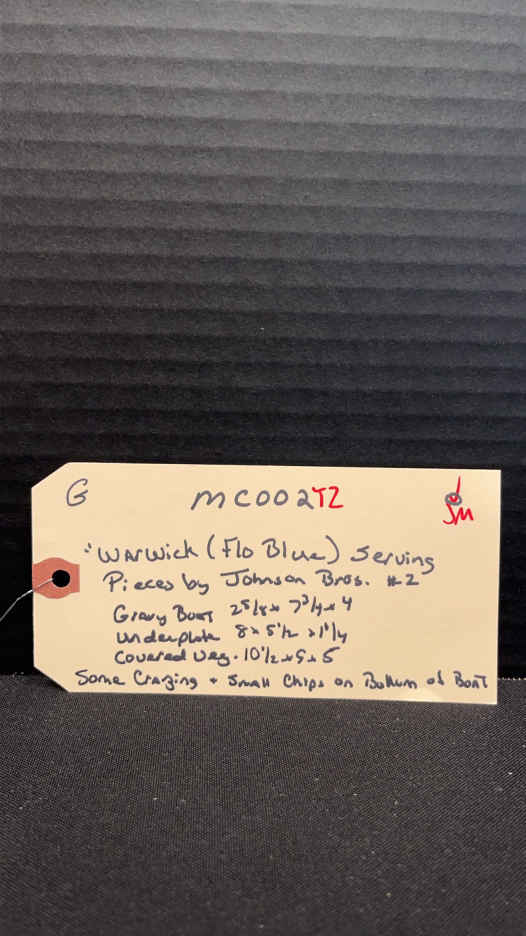 G MC002TZ JM
"Warwick (Flo Blue) Serving
Pieces by Johnson Bros. #2
Gravy Boat 2 5/8 x 7 3/4 x 4
Underplate 8 x 5 1/2 x 1 1/4
Covered Veg. 10 1/2 x 9 x 5
Some Crazing + Small Chips on Bottum of Boat